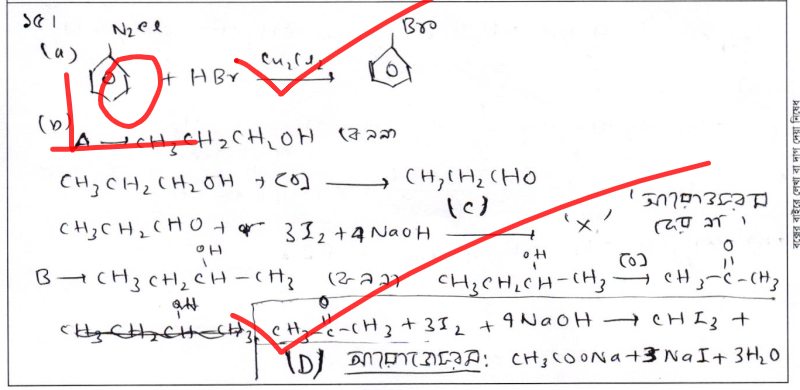 ১৫।
N2Cl Br
(a) + HBr Cu2Cl2 →
(b)
A → CH3CH2CH2OH কেননা
CH3CH2CH2OH + [O] → CH3CH2CHO
(C)
CH3CH2CHO + 3I2 + 4NaOH → 'X' 'আয়োডোফরম হয় না'
OH OH O
B → CH3CH2CH-CH3 (কেননা) CH3CH2CH-CH3 [O] → CH3-C-CH3
OH O
CH3CH2CH-CH3 CH3-C-CH3 + 3I2 + 4NaOH → CHI3 +
(D) আয়োডোফরম: CH3COONa + 3NaI + 3H2O
বক্সের বাইরে লেখা বা দাগ দেয়া নিষেধ